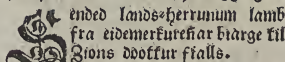 Sended lands=herrunum lamb
fra eidemerkureñar biarge til
Zions doottur fialls.